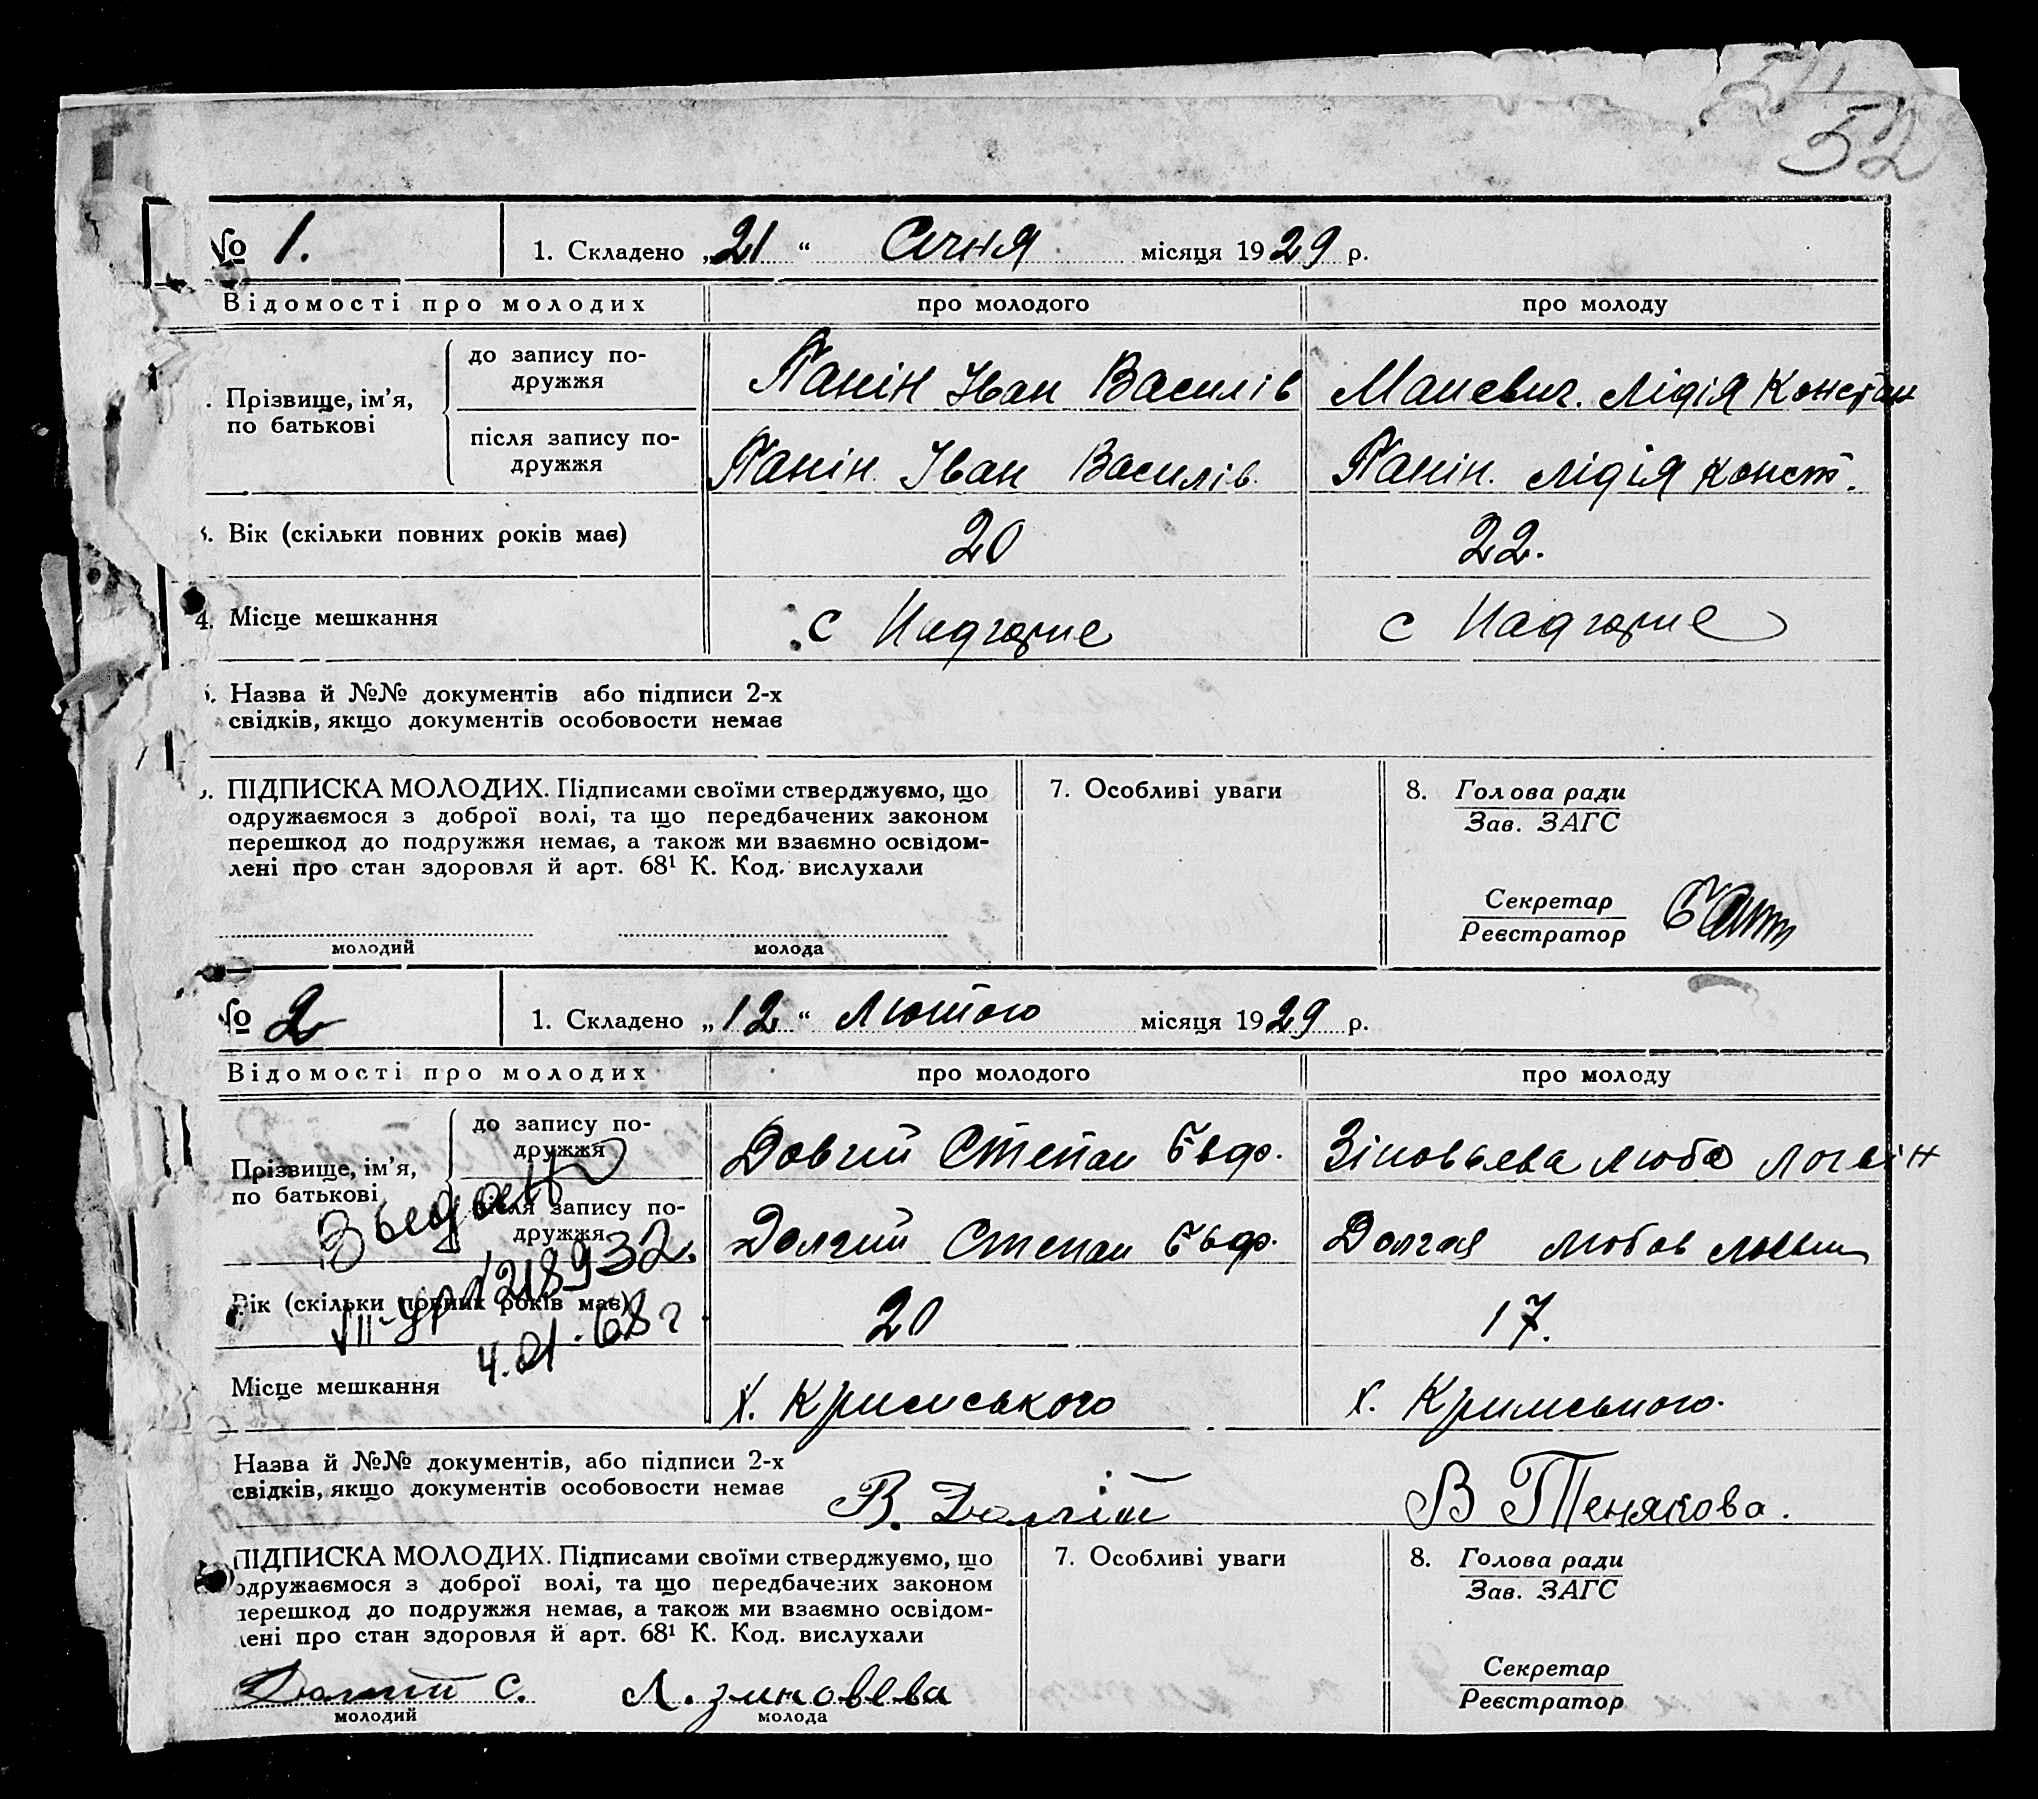 52
№ 1. 1. Складено „21“ Січня місяця 1929 р.
Відомості про молодих про молодого про молоду
Прізвище, ім’я, по батькові
до запису подружжя Панін Іван Василів Мацевич. Лідія Констан
після запису подружжя Панін. Іван Василів. Панін. Лідія Конст.
Вік (скільки повних років має) 20 22.
4. Місце мешкання с Надгорне с Надгорне
Назва й №№ документів або підписи 2-х
свідків, якщо документів особовости немає
ПІДПИСКА МОЛОДИХ. Підписами своїми стверджуємо, що
одружаємося з доброї волі, та що передбачених законом
перешкод до подружжя немає, а також ми взаємно освідом-
лені про стан здоровля й арт. 68¹ К. Код. вислухали
молодий молода
7. Особливі уваги
8. Голова ради
Зав. ЗАГС
Секретар
Реєстратор
№ 2 1. Складено „12“ Лютого місяця 1929 р.
Відомості про молодих про молодого про молоду
Прізвище, ім’я, по батькові
до запису подружжя Довгий Степан Євф. Зіновьева Люба Логвін
після запису подружжя Долгий Степан Євф. Долгая Любов
Выдано
VII-УР 218932.
4.01.68 г.
Вік (скільки повних років має) 20 17.
Місце мешкання х. Кримського х. Кримського.
Назва й №№ документів, або підписи 2-х
свідків, якщо документів особовости немає
В. Долгій В Тенякова.
ПІДПИСКА МОЛОДИХ. Підписами своїми стверджуємо, що
одружаємося з доброї волі, та що передбачених законом
перешкод до подружжя немає, а також ми взаємно освідом-
лені про стан здоровля й арт. 68¹ К. Код. вислухали
Долгий С. Л. Зиновева
молодий молода
7. Особливі уваги
8. Голова ради
Зав. ЗАГС
Секретар
Реєстратор